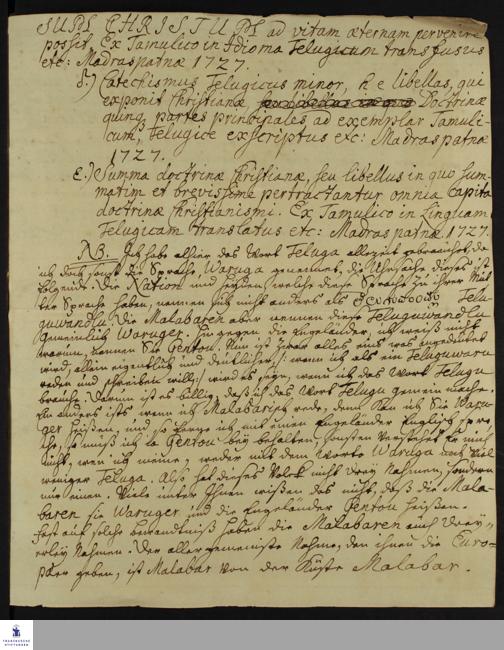 JESUM CHRISTUM ad vitam æternam pervenire
possit. Ex Tamulico in Idioma Telugicum transfusus
etc: Madraspatnæ 1727.
δ.) Catechismus Telugicus minor, h. e libellus, qui
exponit Christianæ Doctrinæ
quinq partes principales ad exemplar Tamuli-
cum, Telugice exscriptus etc: Madraspatnæ
1727.
ε.) Summa doctrinæ Christianæ, seu libellus in quo sum-
matim et brevissime pertractantur omnia capita
doctrinæ Christianismi. Ex Tamulico in Linguam
Telugicam translatus etc: Madraspatnæ. 1727.
NB. Ich habe alhier das Wort Teluga allezeit gebrauchet, da
ich doch sonst die Sprache, Waruga genennet, die Uhrsache dieses ist
folgende. Die Nation und Leuten, welche diese Sprache zu ihrer Mut-
ter Sprache haben, nennen sich nicht anders als Telu-
guwandlu. Die Malabaren aber nennen diese Teluguwandlu
gemeinlich Waruger. Hingegen die Engelländer, ich weiß nicht
warum, nennen Sie Gentou. Nun ist zwar alles eins was angedeutet
wird, allein eigentlich und deutlicher, wenn ich als ein Teluguwaru
reden und schreiben will, wird es seyn, wenn ich das Wort Telugu
brauche. Darum ist es billig, daß ich das Wort Telugu gemein mache.
Ein anders ists wenn ich Malabarisch rede, denn kan ich Sie Waru-
ger heißen, und so ferne ich mit einem Engelländer Englisch spre-
che, so muß ich da Gentou bey behalten, sonsten verstehet er mich
nicht, wen ich meine, weder mit dem Worte Waruga noch viel
weniger Teluga. Also hat dieses Volck nicht drey Nahmen, sondern
nur einen. Viele unter Ihnen wißen das nicht, daß die Mala-
baren sie Waruger und die Engelländer Gentou heißen.
Fast auf solche bewandniß haben die Malabaren auch drey-
erley Nahmen. Der aller gemeineste Nahme, den ihnen die Euro-
päer geben, ist Malabar von der Küste Malabar.
FRANCKESCHE
STIFTUNGEN